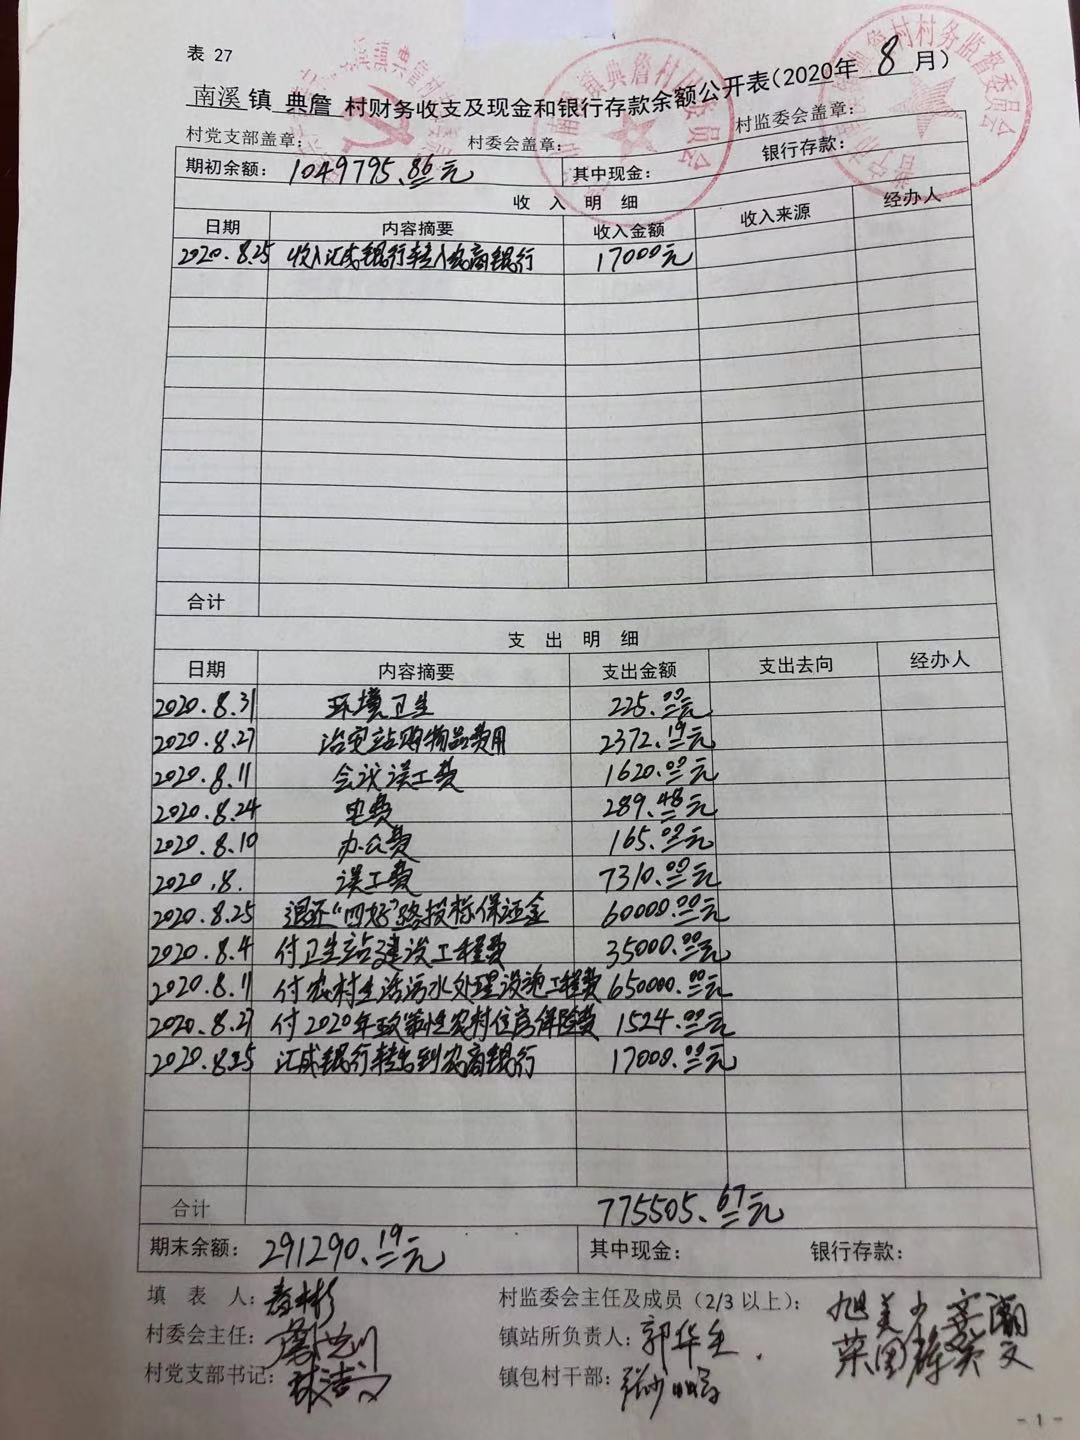 表 27
南溪镇 典詹 村财务收支及现金和银行存款余额公开表(2020年 8 月)
村党支部盖章: 村委会盖章: 村监委会盖章:
期初余额: 1049795.86元 其中现金: 银行存款:
收 入 明 细
日期 内容摘要 收入金额 收入来源 经办人
2020.8.25 收入汇成银行转入农商银行 17000元
合计
支 出 明 细
日期 内容摘要 支出金额 支出去向 经办人
2020.8.31 环境卫生 225.00元
2020.8.27 治安站购物品费用 2372.19元
2020.8.11 会议误工费 1620.00元
2020.8.24 电费 289.48元
2020.8.10 办公费 165.00元
2020.8. 误工费 7310.00元
2020.8.25 退还“四好”路投标保证金 60000.00元
2020.8.4 付卫生站建设工程费 35000.00元
2020.8.11 付农村生活污水处理设施工程费 650000.00元
2020.8.27 付2020年政策性农村住房保险费 1524.00元
2020.8.25 汇成银行转出到农商银行 17000.00元
合计 775505.67元
期末余额: 291290.19元 其中现金: 银行存款:
填 表 人: 村监委会主任及成员(2/3以上):
村委会主任: 镇站所负责人: 郭华
村党支部书记: 镇包村干部:
- 1 -